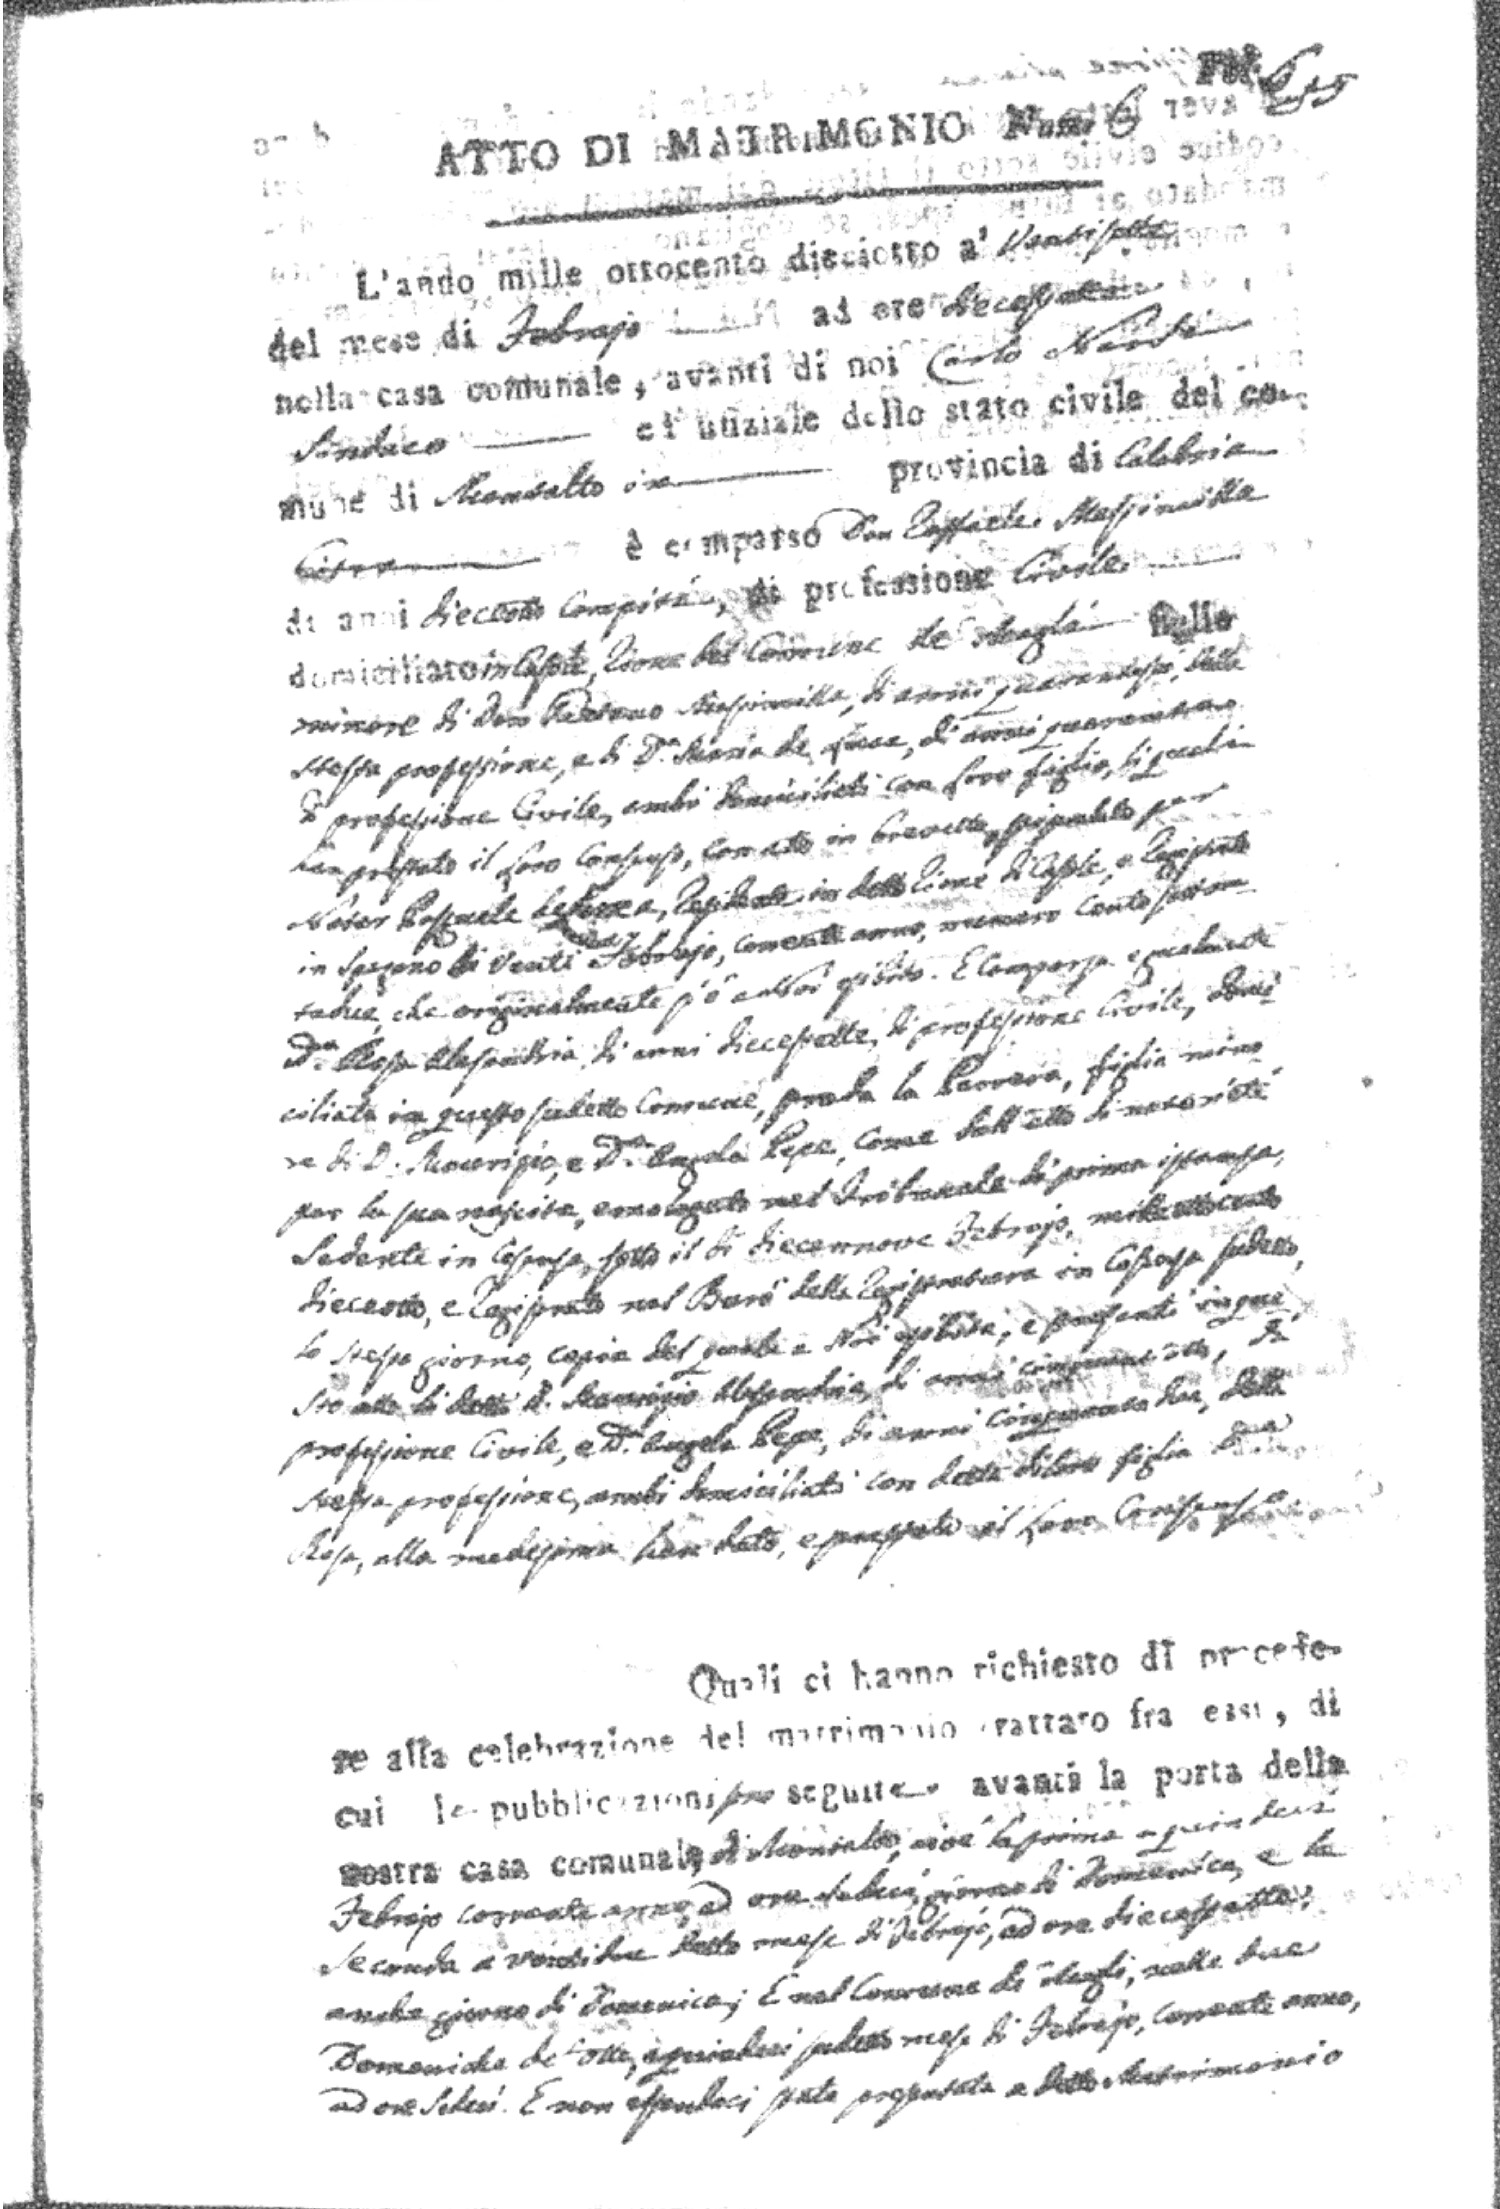 Fol. 6
ATTO DI MATRIMONIO Num. 6
L'anno mille ottocento dieciotto a' Ventisette
del mese di Febrajo ad ore diecessette
nella casa comunale, avanti di noi Carlo Nardi
Sindaco ed ufiziale dello stato civile del co-
mune di Montalto in provincia di Calabria
Citra è comparso Don Raffaele Messinilla
di anni dieciotto compiti, di professione Civile
domiciliato in Casole, Rione del Comune de' Reali figlio
minore di Don Gaetano Messinilla, di anni quarantasei, della
stessa professione, e di D.a Maria de Luca, di anni quarantuno
di professione Civile, ambi domiciliati con loro figlio, li quali
han prestato il loro Consenso, con atto in brevetto, stipulato per
Notar Pasquale, Residente in detto Rione di Casole, e Registrato
in Spezzano di venti Febrajo, corrente anno, numero Cento settan-
tadue, che originalmente si è a noi esibito. E Comparsa egualmente
D.a Rosa Alesandria, di anni diecessette, di professione Civile, domi-
ciliata in questo sudetto Comune, strada la Carrera, figlia mino-
re di D. Maurizio, e D.a Angela Pepe, come dall'atto di notorietà
per la sua nascita, emologato nel Tribunale di prima istanza,
Sedente in Cosenza, sotto il dì diecennove Febrajo, mille ottocento
dieceotto, e Registrato nel Burò della Registratura in Cosenza sudetto,
lo stesso giorno, copia del quale a Noi esibita; e presenti in que-
sto atto li detti D. Maurizio Alesandria, di anni cinquant'otto, di
professione Civile, e D.a Angela Pepe, di anni cinquantadue, della
stessa professione, ambi domiciliati con detta di loro figlia D.a
Rosa, alla medesima han dato, e prestato il loro Consenso
Quali ci hanno richiesto di procede-
re alla celebrazione del matrimonio trattato fra essi, di
cui le pubblicazioni sono seguite avanti la porta della
nostra casa comunale, di Montalto, cioè la prima a quindeci
Febrajo corrente anno, ad ore sedeci, giorno di Domenica, e la
seconda a ventidue detto mese di Febrajo, ad ore diecessette,
anche giorno di Domenica; E nel Comune di Reali, nelle due
Domeniche de' otto, e quindeci sudetto mese di Febrajo, corrente anno,
ad ore Sedeci. E non essendoci stata proposta a detto Matrimonio